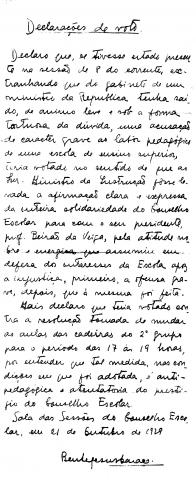 Declarações de voto.
Declaro que, se tivesse estado presen-
te na sessão de 8 do corrente, ex-
tranhando que do gabinete de um
ministro da Republica tenha saí-
do, de animo leve e sob a forma
tortuosa da dúvida, uma acusação
de caracter grave ao labor pedagógico
de uma escola de ensino superior,
teria votado no sentido de que ao
Snr. Ministro da Instrução fosse le-
vada a afirmação clara e expressa
da inteira solidariedade do Conselho
Escolar para com o seu presidente,
prof. Beirão da Veiga, pela atitude no-
bre e que assumiu em
defesa dos interesses da Escola após
a injustiça, primeiro, a ofensa gra-
ve, depois, que à mesma foi feita.
Mais declaro que teria votado con-
tra a resolução tomada de mudar
as aulas das cadeiras do 2º grupo
para o periodo das 17 às 19 horas,
por entender que tal medida, nas con-
dições em que foi adotada, é anti-
pedagogica e atentatoria do prestí-
gio do Conselho Escolar.
Sala das Sessões do Conselho Esco-
lar, em 21 de Outubro de 1929